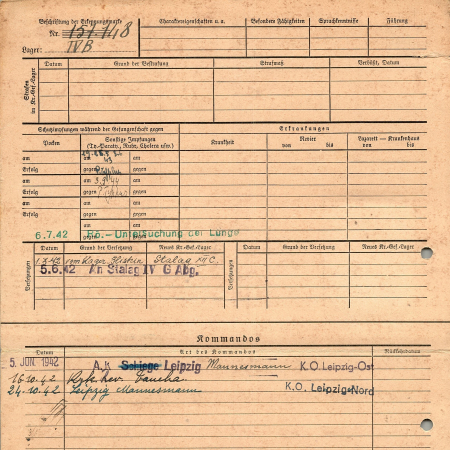 Beschriftung der Erkennungsmarke
Nr. 157148
Lager: IV B
Charaktereigenschaften u. a.
Besondere Fähigkeiten
Sprachkenntnisse
Führung
Strafen im Kr.-Gef.-Lager
Datum
Grund der Bestrafung
Strafmaß
Verbüßt, Datum
Schutzimpfungen während der Gefangenschaft gegen
Erkrankungen
Pocken
Sonstige Impfungen
(Ty.-Paraty., Ruhr, Cholera usw.)
Krankheit
Revier
von bis
Lazarett – Krankenhaus
von bis
am am am
Erfolg gegen gegen
am am am
Erfolg gegen gegen
am am am
Erfolg gegen gegen
6.7.42 Rö.- Untersuchung der Lunge
Versetzungen
Datum
Grund der Versetzung
Neues Kr.-Gef.-Lager
Versetzungen
Datum
Grund der Versetzung
Neues Kr.-Gef.-Lager
Stalag
5.6.42 An Stalag IV G Abg.
Kommandos
Datum
Art des Kommandos
Rückkehrdatum
5. JUNI 1942 A.K. Leipzig Mannesmann K.O. Leipzig-Ost
16.10.42 Taucha
24.10.42 Leipzig Mannesmann K.O. Leipzig-Nord